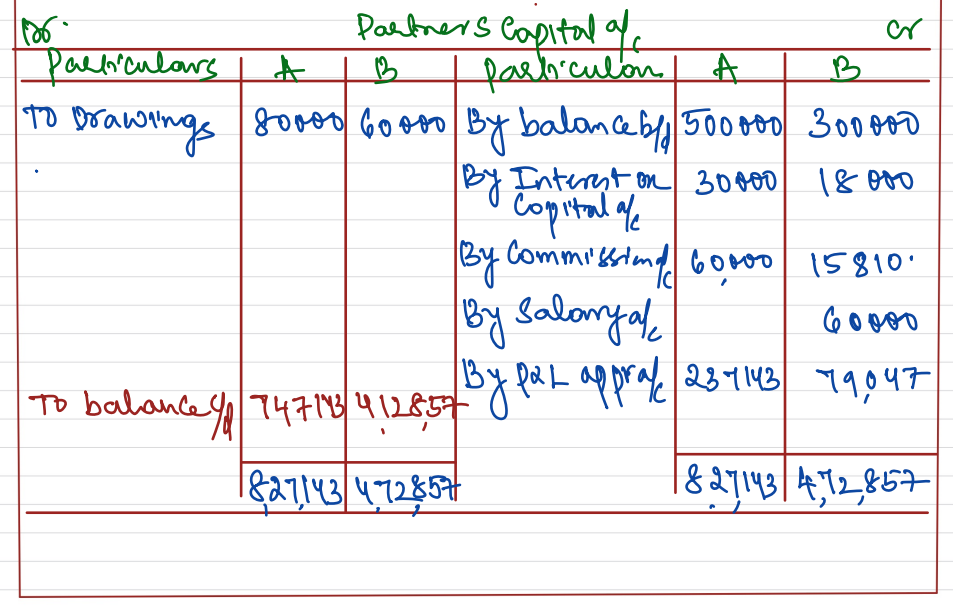 Dr. Partners Capital a/c cr
Particulars A B Particulars A B
To Drawings 80000 60000 By balance b/d 500000 300000
By Interest on 30000 18000
Capital a/c
By Commission a/c 60,000 15810.
By Salary a/c 60000
By P&L appr a/c 237143 79,047
To balance c/d 747143 412857
8,27,143 4,72,857 8,27,143 4,72,857